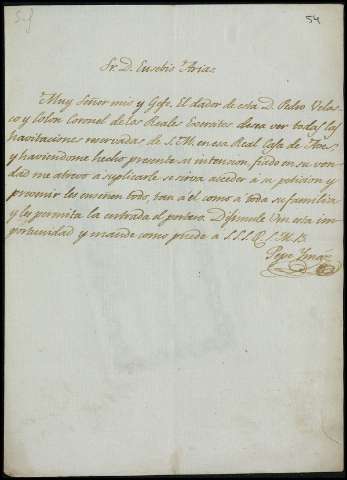 54
Sr. D. Eusebio Arias
Muy Señor mio y Gefe. El dador de esta D. Pedro Velas
co y Colon Coronel de los Reales Exercitos desea ver todas las
havitaciones reservadas de S. M. en esa Real Casa de
y haviendome hecho presente su intension, fiado en su von
dad me atrevo a suplicarle se sirva acceder á su peticion y
les enseñen todo, tan a el como a toda su familia
y les permita la entrada el portero. Disimule Vm esta im
portunidad y mande como puede a S. S. S. Q. S. M. B.
Pepe Ymaz